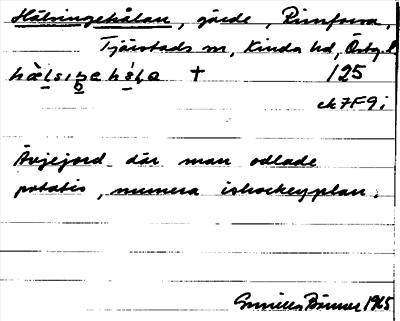 Hälsingehålan, gärde, Rimforsa,
Tjärstads sn, Kinda hd, Östg.l.
†
125
ek 7F9i
Ävjejord där man odlade
potatis, numera ishockeyplan.
Gunilla 1965